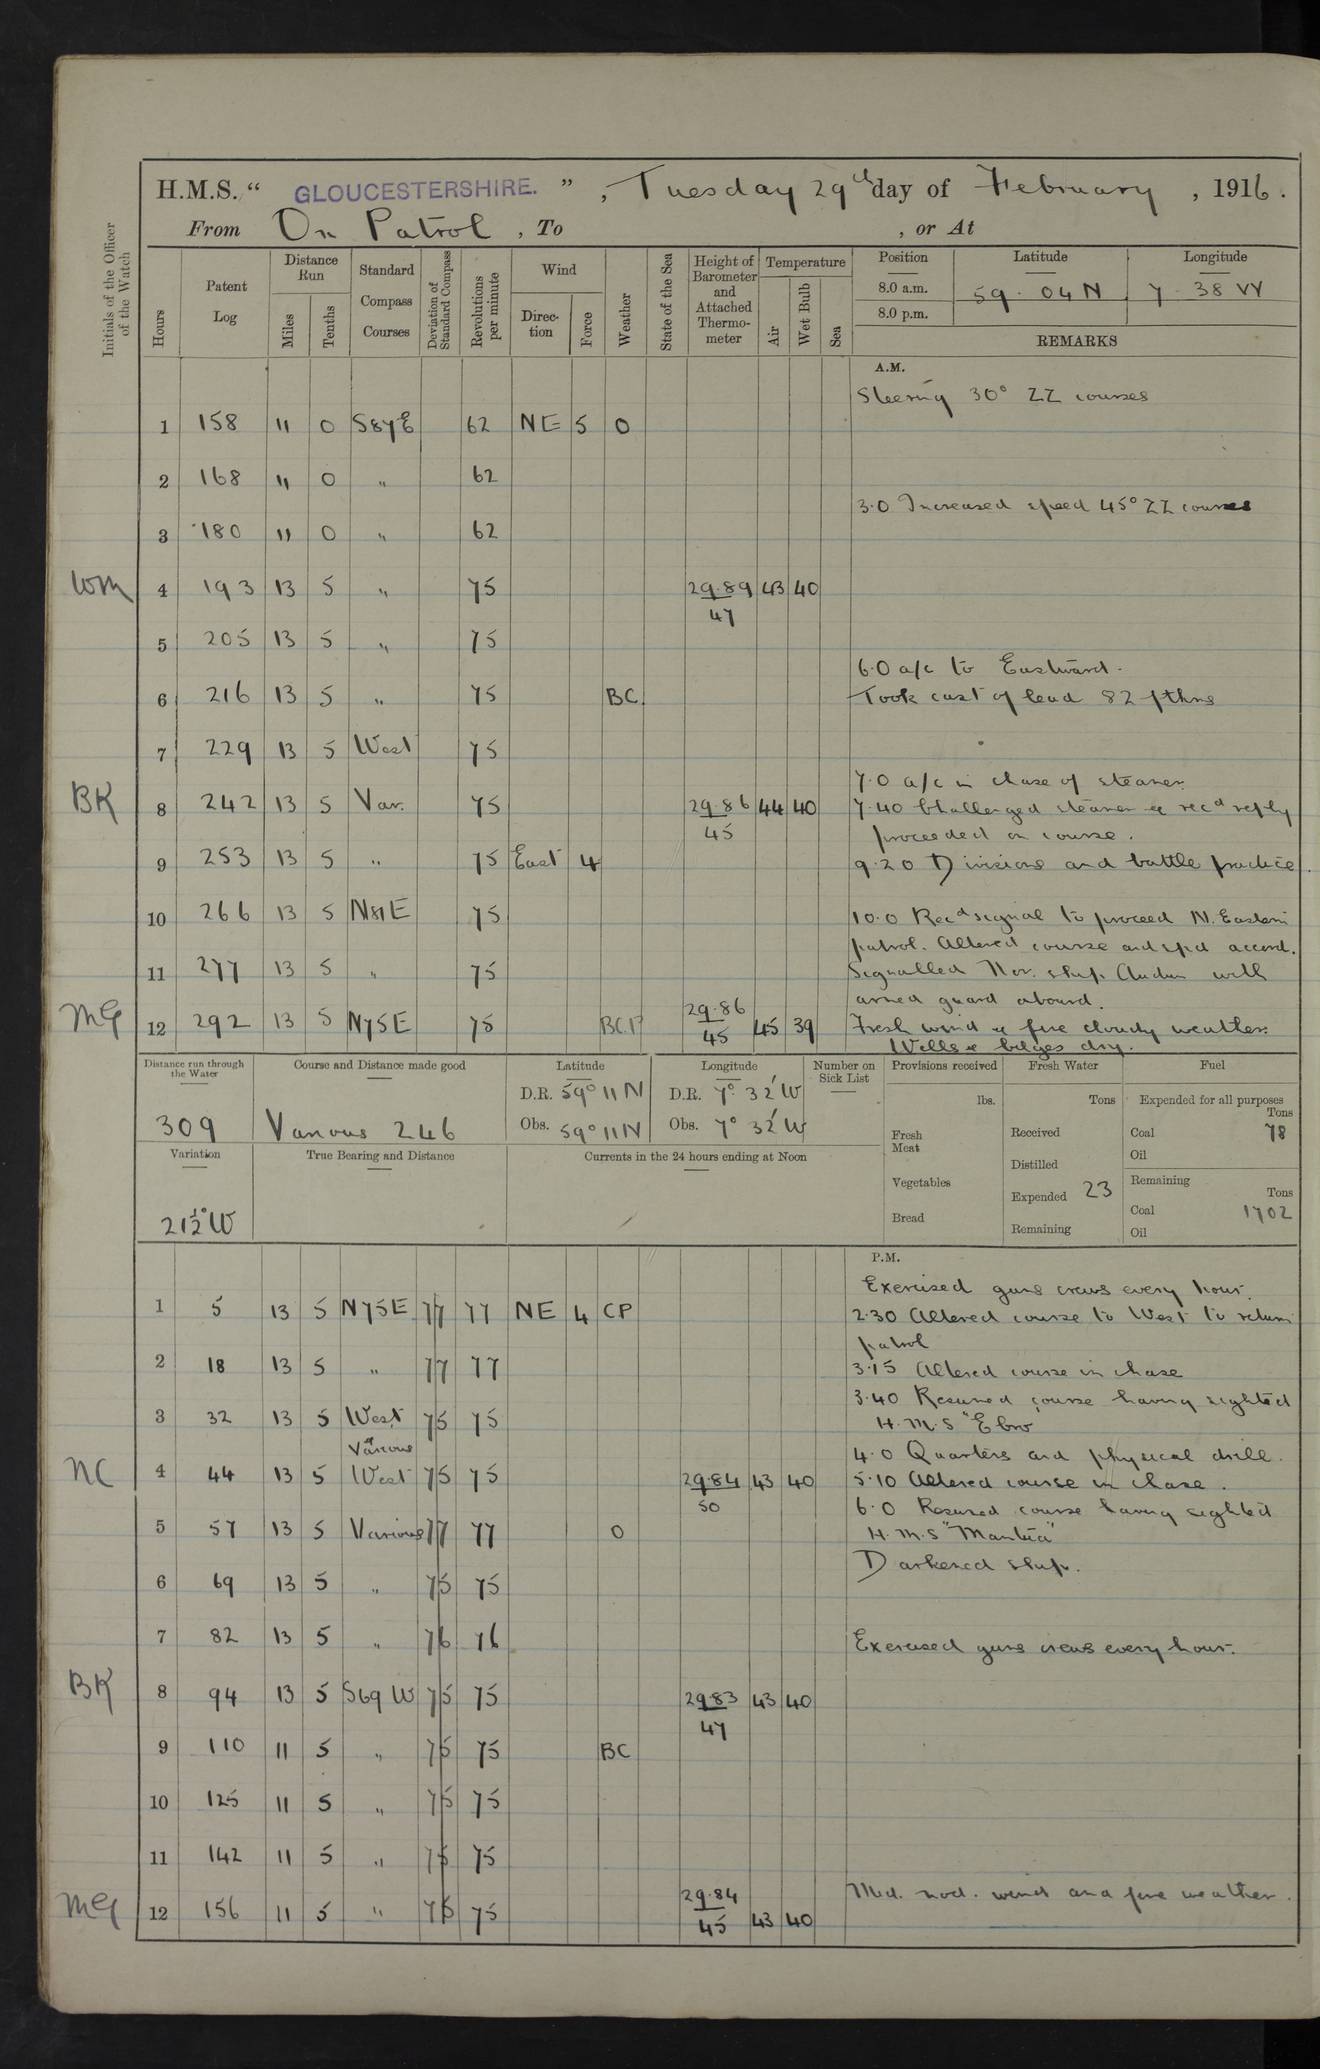 H.M.S. “ GLOUCESTERSHIRE. ” , Tuesday 29th day of February , 1916 .
From On Patrol , To , or At
Initials of the Officer of the Watch
Hours
Patent Log
Distance Run
Miles
Tenths
Standard Compass Courses
Deviation of Standard Compass
Revolutions per minute
Wind
Direction
Force
Weather
State of the Sea
Height of Barometer and Attached Thermometer
Temperature
Air
Wet Bulb
Sea
Position Latitude Longitude
8.0 a.m. 59 · 04 N 7 · 38 W
8.0 p.m.
REMARKS
A.M.
Steering 30° ZZ courses
1 158 11 0 S87E 62 NE 5 O
2 168 11 0 " 62
3.0 Increased speed 45° ZZ courses
3 180 11 0 " 62
WM 4 193 13 5 " 75 29.89 43 40
47
5 205 13 5 " 75
6.0 a/c to Eastward.
6 216 13 5 " 75 BC Took cast of lead 82 fthms
7 229 13 5 West 75
7.0 a/c in chase of steamer.
BK 8 242 13 5 Var. 75 29.86 44 40 7.40 Challenged steamer & recd reply
45 proceeded on course.
9 253 13 5 " 75 East 4 9.20 Divisions and battle practice.
10 266 13 5 N81E 75 10.0 Recd signal to proceed N. Eastern
patrol. Altered course and spd accord.
11 277 13 5 " 75 Signalled Nor. ship with
armed guard aboard.
MG 12 292 13 5 N75E 75 BC.P 29.86 45 39 Fresh wind & fine cloudy weather.
45 Wells & bilges dry.
Distance run through the Water
309
Course and Distance made good
Various 246
Latitude
D.R. 59° 11 N
Obs. 59° 11 N
Longitude
D.R. 7° 32' W
Obs. 7° 32' W
Number on Sick List
Provisions received
lbs.
Fresh Meat
Vegetables
Bread
Fresh Water
Tons
Received
Distilled
Expended 23
Remaining
Fuel
Expended for all purposes
Tons
Coal 78
Oil
Remaining
Tons
Coal 1702
Oil
Variation
21½° W
True Bearing and Distance
Currents in the 24 hours ending at Noon
P.M.
Exercised guns crews every hour.
1 5 13 5 N75E 77 77 NE 4 CP 2.30 Altered course to West to return
patrol
2 18 13 5 " 77 77 3.15 Altered course in chase
3.40 Resumed course having sighted
3 32 13 5 West 75 75 H.M.S "Ebro
& Various
4.0 Quarters and physical drill.
NC 4 44 13 5 West 75 75 29.84 43 40 5.10 Altered course in chase.
50 6.0 Resumed course having sighted
5 57 13 5 Various 77 77 O H.M.S "Mantua"
Darkened ship.
6 69 13 5 " 75 75
7 82 13 5 " 76 76 Exercised guns crews every hour.
BK 8 94 13 5 S69 W 75 75 29.83 43 40
47
9 110 11 5 " 75 75 BC
10 125 11 5 " 75 75
11 142 11 5 " 75 75
MG 12 156 11 5 " 75 75 29.84 43 40 Mid. mod. wind and fine weather.
45